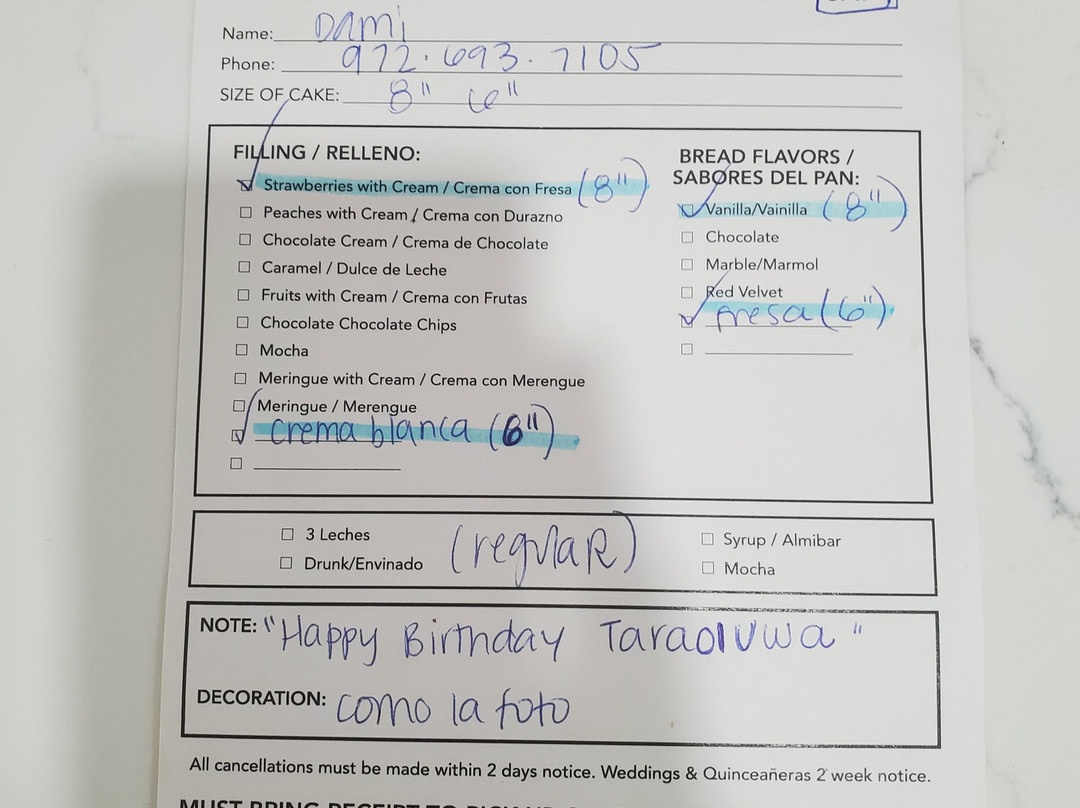 Name: Dami
Phone: 972.693.7105
SIZE OF CAKE: 8" 6"
FILLING / RELLENO:
Strawberries with Cream / Crema con Fresa (8")
Peaches with Cream / Crema con Durazno
Chocolate Cream / Crema de Chocolate
Caramel / Dulce de Leche
Fruits with Cream / Crema con Frutas
Chocolate Chocolate Chips
Mocha
Meringue with Cream / Crema con Merengue
Meringue / Merengue
crema blanca (6")
BREAD FLAVORS /
SABORES DEL PAN:
Vanilla/Vainilla (8")
Chocolate
Marble/Marmol
Red Velvet
Fresa (6")
3 Leches
Drunk/Envinado
(regular)
Syrup / Almibar
Mocha
NOTE: "Happy Birthday Taraoluwa"
DECORATION: como la foto
All cancellations must be made within 2 days notice. Weddings & Quinceañeras 2 week notice.
MUST BRING RECEIPT TO PICK UP